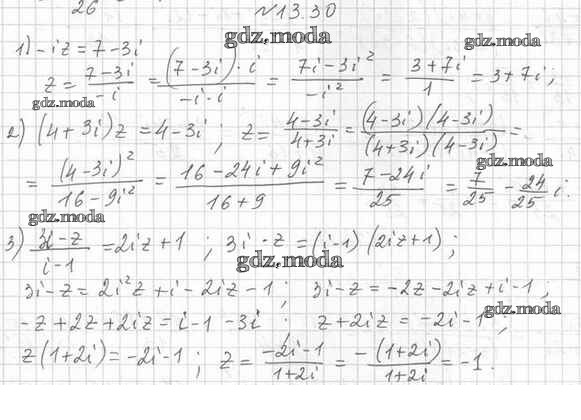 26 №13.30
gdz.moda
1) -iz = 7-3i
z = \frac{7-3i}{-i} = \frac{(7-3i)·i}{-i·i} = \frac{7i-3i^2}{-i^2} = \frac{3+7i}{1} = 3+7i;
gdz.moda
gdz.moda
2) (4+3i)z = 4-3i; z = \frac{4-3i}{4+3i} = \frac{(4-3i)(4-3i)}{(4+3i)(4-3i)} =
gdz.moda
= \frac{(4-3i)^2}{16-9i^2} = \frac{16-24i+9i^2}{16+9} = \frac{7-24i}{25} = \frac{7}{25} - \frac{24}{25} i.
gdz.moda
3) \frac{3i-z}{i-1} = 2iz+1; 3i-z = (i-1)(2iz+1);
gdz.moda
3i-z = 2i^2z+i-2iz-1; 3i-z = -2z-2iz+i-1;
gdz.moda
-z+2z+2iz = i-1-3i; z+2iz = -2i-1;
z(1+2i) = -2i-1; z = \frac{-2i-1}{1+2i} = \frac{-(1+2i)}{1+2i} = -1.